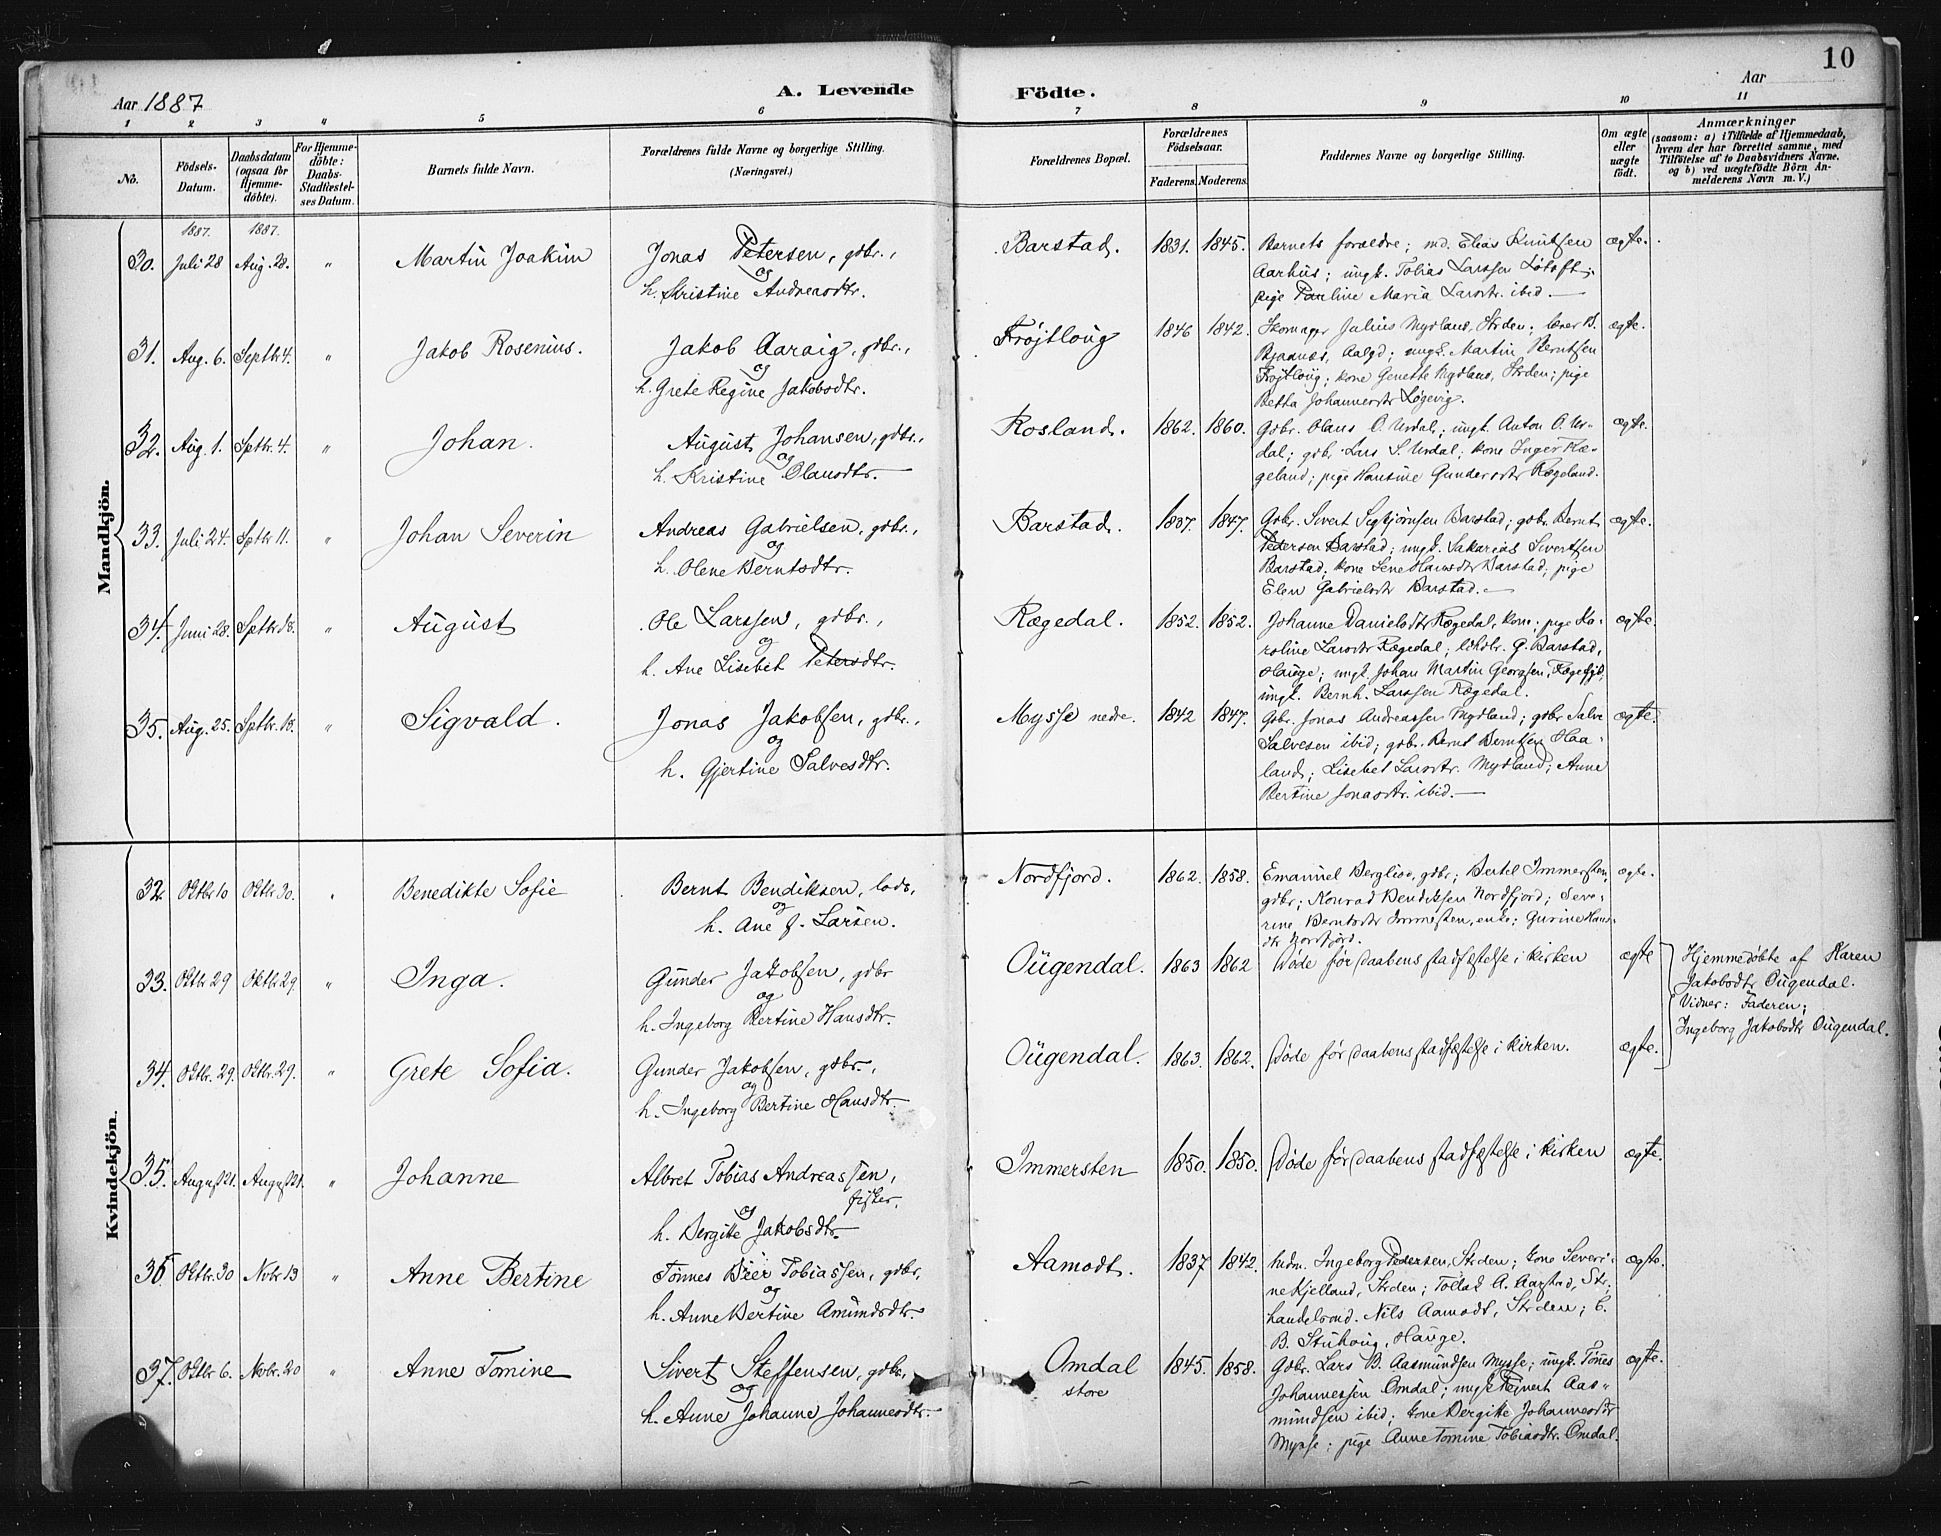 10
Aar 1887
A. Levende Födte.
Aar
1 2 3 4 5 6 7 8 9 10 11
No.
Födsels-Datum.
Daabsdatum (ogsaa for Hjemme-döbte).
For Hjemme-döbte: Daabs-Stadfæstel-ses Datum.
Barnets fulde Navn.
Forældrenes fulde Navne og borgerlige Stilling. (Næringsvei.)
Forældrenes Bopæl.
Forældrenes Födselsaar.
Faderens. Moderens.
Faddernes Navne og borgerlige Stilling.
Om ægte eller uægte födt.
Anmærkninger
(saasom: a) i Tilfælde af Hjemmedaab, hvem der har forrettet samme, med Tilföielse af to Daabsvidners Navne, og b) ved uægtefödte Börn An-melderens Navn m. V.)
Mandkjön.
1887. 1887.
30. Juli 28 Aug. 28. " Martin Joakim
Jonas Petersen, gdbr.,
og
h. Kristine Andreasdtr.
Barstad. 1831. 1845.
Barnets forældre; md. Elias Knutsen
Aarhus; ungk. Tobias Larssen Løtoft;
pige Pauline Maria Larsdtr. ibid.
ægte.
31. Aug. 6. Septb 4. " Jakob Rosenius.
Jakob Aaraig, gdbr.,
og
h. Grete Regine Jakobsdtr.
Frøjtloug 1846 1842.
Skomager Julius Mydland, Strden; lærer B.
Bjaanes, Aalgd; ungk. Martin Berntsen
Frøjtloug; kone Genette Mydland, Strden; pige
Betha Johannesdtr Løgevig.
ægte.
32. Aug. 1. Sptbr. 4. " Johan.
August Johansen, gdbr.,
og
h. Kristine Olausdtr.
Rosland. 1862. 1860.
Gdbr. Olaus O. Urdal; ungk. Anton O. Ur-
dal; gdbr Lars S. Urdal; kone Inger Ræ-
geland; pige Hansine Gundersdtr Rægeland.
ægte.
33. Juli 24. Sptbr 11. " Johan Severin
Andreas Gabrielsen, gdbr.,
og
h. Olene Berntsdtr.
Barstad. 1837. 1847.
Gdbr. Sivert Sigbjørnsen Barstad; gdbr. Bernt
Pedersen Barstad; ungk. Sakarias Sivertsen
Barstad; kone Lene Hansdtr Barstad; pige
Elen Gabrielsdtr Barstad.
ægte.
34. Juni 28. Sptbr 18. " August
Ole Larssen, gdbr.,
og
h. Ane Lisebet Petersdtr.
Rægedal. 1852. 1852.
Johanne Danielsdtr Rægedal, kone; pige Ka-
roline Larsdtr Rægedal; G. Barstad,
Hauge; ungk. Johan Martin Georgsen,
ungk. Bernh. Larssen Rægedal.
ægte.
35. Aug. 25. Sptbr. 18. " Sigvald.
Jonas Jakobsen, gdbr.,
og
h. Gjertine Salvesdtr.
Mysse nedre. 1842 1847.
Gdbr. Jonas Andreassen Mydland; gdbr Salve
Salvesen ibid; gdbr. Bernt Berntsen Haa-
land; Lisebet Larsdtr. Mydland; Anne
Bertine Jonasdtr. ibid.
ægte.
Kvindekjön.
32. Oktbr 10 Oktbr 30. " Benedikte Sofie
Bernt Bendiksen, lods,
og
h. Ane J. Larsen.
Nordfjord. 1862. 1858.
Emanuel Berglioo, gdbr; Bertel Immersten,
gdbr; Konrad Bendiksen Nordfjord; Seve-
rine Berntsdtr Immersten, enke; Gurine Hans-
dtr Nordfjord.
ægte.
33. Oktbr 29 Oktbr 29. " Inga.
Gunder Jakobsen, gdbr
og
h. Ingeborg Bertine Hansdtr.
Ougendal. 1863 1862
Døde før daabens stadfæstelse i kirken
ægte
Hjemmedøbte af Karen
Jakobsdtr Ougendal.
Vidner: Faderen;
Ingeborg Jakobsdtr Ougendal.
34. Oktbr. 29. Oktbr. 29. " Grete Sofia.
Gunder Jakobsen, gdbr.,
og
h. Ingeborg Bertine Hansdtr.
Ougendal. 1863. 1862.
Døde før daabens stadfæstelse i kirken.
ægte.
35. August 21. August 21. " Johanne
Albret Tobias Andreassen,
fisker,
og
h. Bergitte Jakobsdtr.
Immersten 1850. 1850.
Døde før daabens stadfæstelse i kirken
ægte.
36. Oktbr. 30 Nvbr. 13 " Anne Bertine
Tønnes Beer Tobiassen, gdbr,
og
h. Anne Bertine Amundsdtr.
Aamodt. 1837 1842.
hudm. Ingeborg Pedersen, Strden; kone Severi-
ne Kjelland, Strden; Tollak A. Aarstad, Str.;
handelsmd. Nils Aamodt, Strden; E.
B. Stuhoug, Hauge.
ægte.
37. Oktbr 6. Novbr. 20 " Anne Tomine
Sivert Steffensen, gdbr.,
og
h. Anne Johanne Johannesdtr.
Omdal
store
1845. 1858.
Gdbr. Lars B. Aasmundsen Mysse; ungk. Tønes
Johannessen Omdal; ungk Rejnert Aas-
mundsen ibid; kone Bergitte Johannesdtr
Mysse; pige Anne Tomine Tobiasdtr. Omdal.
ægte.